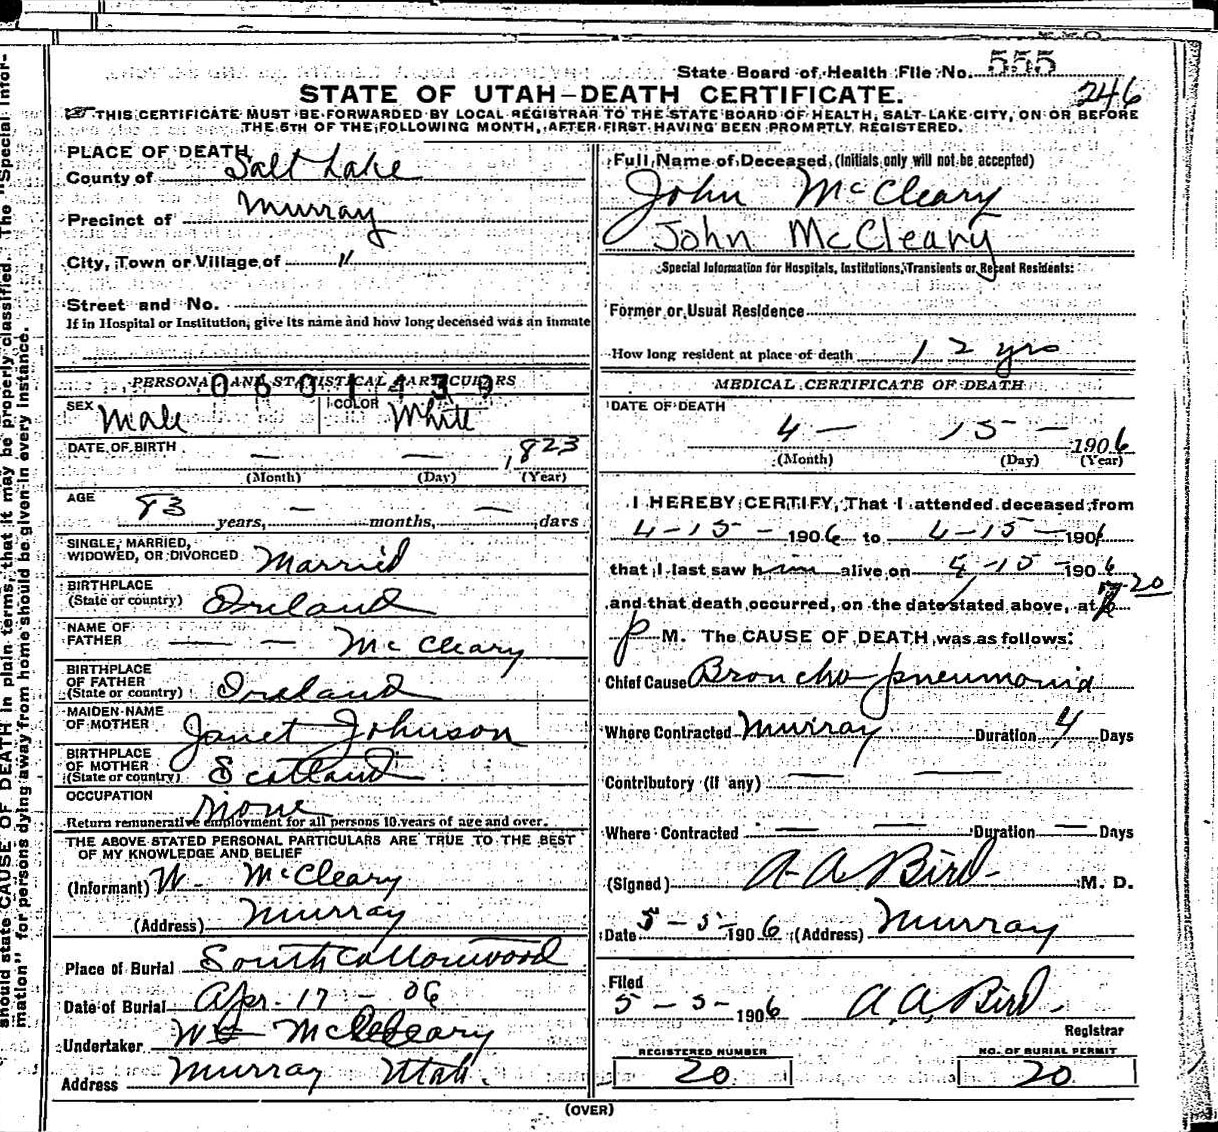 State Board of Health File No. 555
246
STATE OF UTAH—DEATH CERTIFICATE.
THIS CERTIFICATE MUST BE FORWARDED BY LOCAL REGISTRAR TO THE STATE BOARD OF HEALTH, SALT LAKE CITY, ON OR BEFORE
THE 5TH OF THE FOLLOWING MONTH, AFTER FIRST HAVING BEEN PROMPTLY REGISTERED.
PLACE OF DEATH
County of Salt Lake
Precinct of Murray
City, Town or Village of "
Street and No.
If in Hospital or Institution, give its name and how long deceased was an inmate
PERSONAL AND STATISTICAL PARTICULARS
0601439
SEX Male COLOR White
DATE OF BIRTH — — 1823
(Month) (Day) (Year)
AGE
83 years, — months, — days
SINGLE, MARRIED,
WIDOWED, OR DIVORCED Married
BIRTHPLACE
(State or country) Ireland
NAME OF
FATHER — — McCleary
BIRTHPLACE
OF FATHER
(State or country) Ireland
MAIDEN NAME
OF MOTHER Janet Johnson
BIRTHPLACE
OF MOTHER
(State or country) Scotland
OCCUPATION None
Return remunerative employment for all persons 10 years of age and over.
THE ABOVE STATED PERSONAL PARTICULARS ARE TRUE TO THE BEST
OF MY KNOWLEDGE AND BELIEF
(Informant) W. McCleary
(Address) Murray
Place of Burial South Cottonwood
Date of Burial Apr. 17 - 06
Undertaker McCleary
Address Murray Utah.
Full Name of Deceased (Initials only will not be accepted)
John McCleary
John McCleary
Special Information for Hospitals, Institutions, Transients or Recent Residents:
Former or Usual Residence
How long resident at place of death 12 yrs
MEDICAL CERTIFICATE OF DEATH
DATE OF DEATH
4 — 15 — 1906
(Month) (Day) (Year)
I HEREBY CERTIFY, That I attended deceased from
4-15-1906 to 4-15-1906
that I last saw him alive on 4-15-1906
and that death occurred, on the date stated above, at 7-20
P M. The CAUSE OF DEATH was as follows:
Chief Cause Broncho pneumonia
Where Contracted Murray Duration 4 Days
Contributory (if any) — —
Where Contracted — — Duration — Days
(Signed) A. A. Bird M. D.
Date 5-5-1906 (Address) Murray
Filed
5-5-1906 A. A. Bird.
Registrar
REGISTERED NUMBER
20
NO. OF BURIAL PERMIT
20
(OVER)
should state CAUSE OF DEATH in plain terms, that it may be properly classified. The "Special Infor-
mation" for persons dying away from home should be given in every instance.